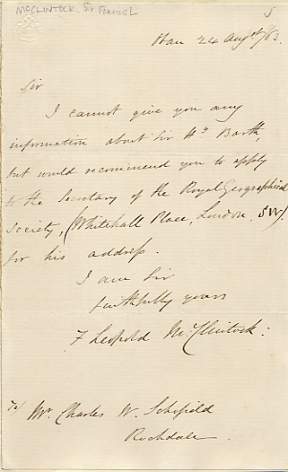 McCLINTOCK, Sir Francis L
5
24 Augst /63.
Sir
I cannot give you any
information about Sir Hy Barth,
but would recommend you to apply
to the Secretary of the Royal Geographical
Society, (Whitehall Place, London, SW).
for his address.
I am Sir
faithfully yours
F Leopold McClintock:
To/ Mr. Charles W. Schofield
Rochdale.